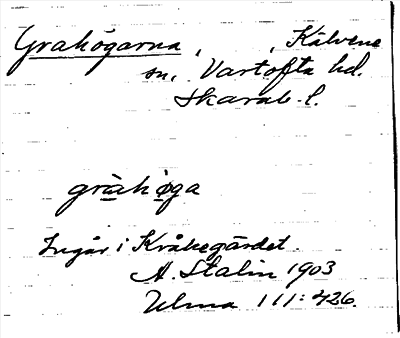 Grahögarna, , Kälvene
sn, Vartofta hd.
Skarab. l.
gràh øga
Ingår i Kråkegärdet.
A. Stalin 1903
Ulma 111:426.